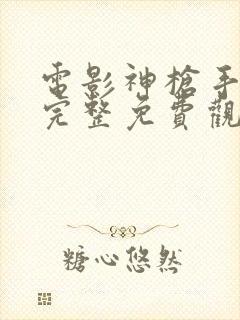 電影神槍手
完整免費觀
糖心悠然